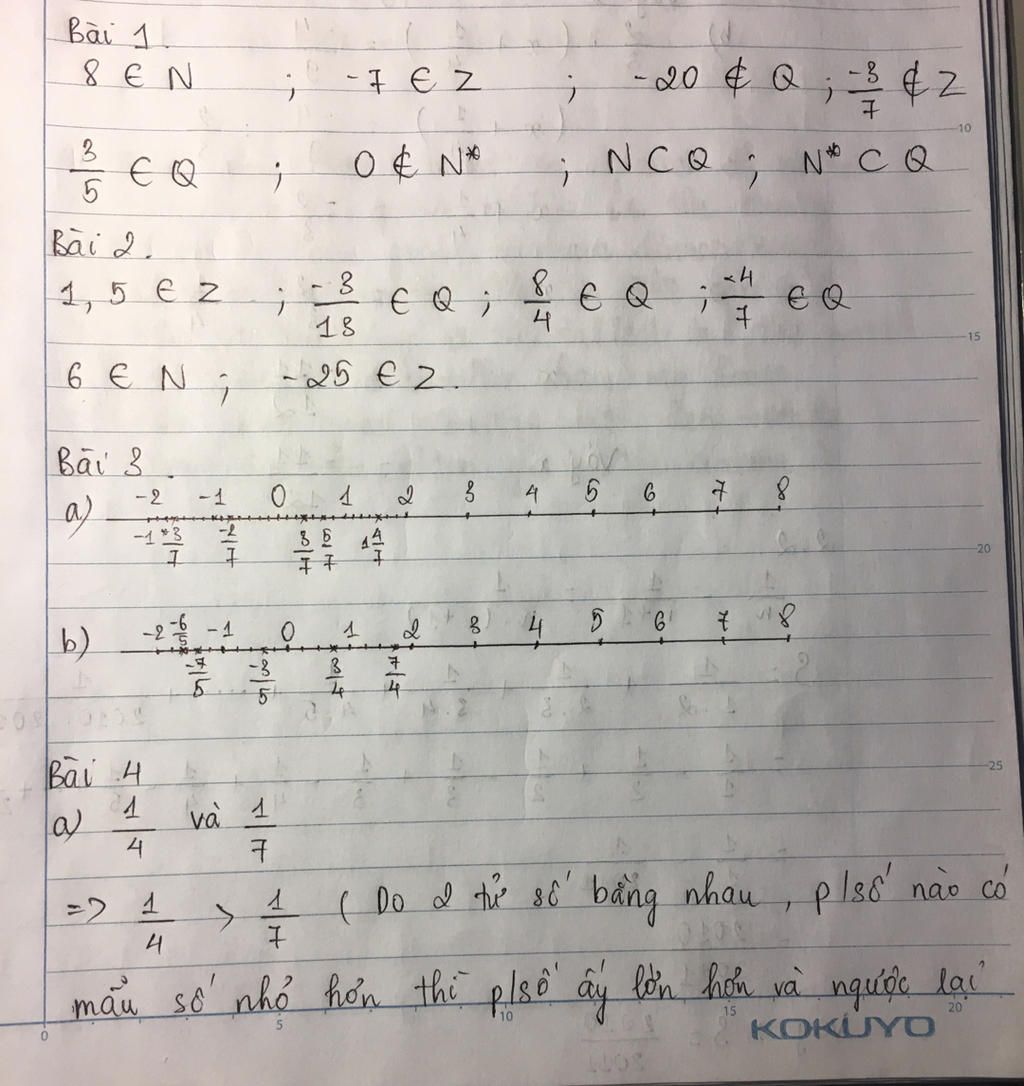 Bài 1.
8 ∈ N ; -7 ∈ Z ; -20 ∉ Q ; -3/7 ∉ Z
3/5 ∈ Q ; 0 ∉ N* ; N ⊂ Q ; N* ⊂ Q
10
Bài 2.
1,5 ∈ Z ; -3/13 ∈ Q ; 8/4 ∈ Q ; -4/7 ∈ Q
15
6 ∈ N ; -25 ∈ Z.
Bài 3.
a) -2 -1 0 1 2 3 4 5 6 7 8
-1 3/7 -2/7 3/7 5/7 1 4/7
20
b) -2 -6/5 -1 0 1 2 3 4 5 6 7 8
-7/5 -3/5 3/4 7/4
Bài 4
25
a) 1/4 và 1/7
=> 1/4 > 1/7 ( Do 2 tử số bằng nhau, p/số nào có
mẫu số nhỏ hơn thì p/số ấy lớn hơn và ngược lại
0 5 10 15 20
KOKUYO